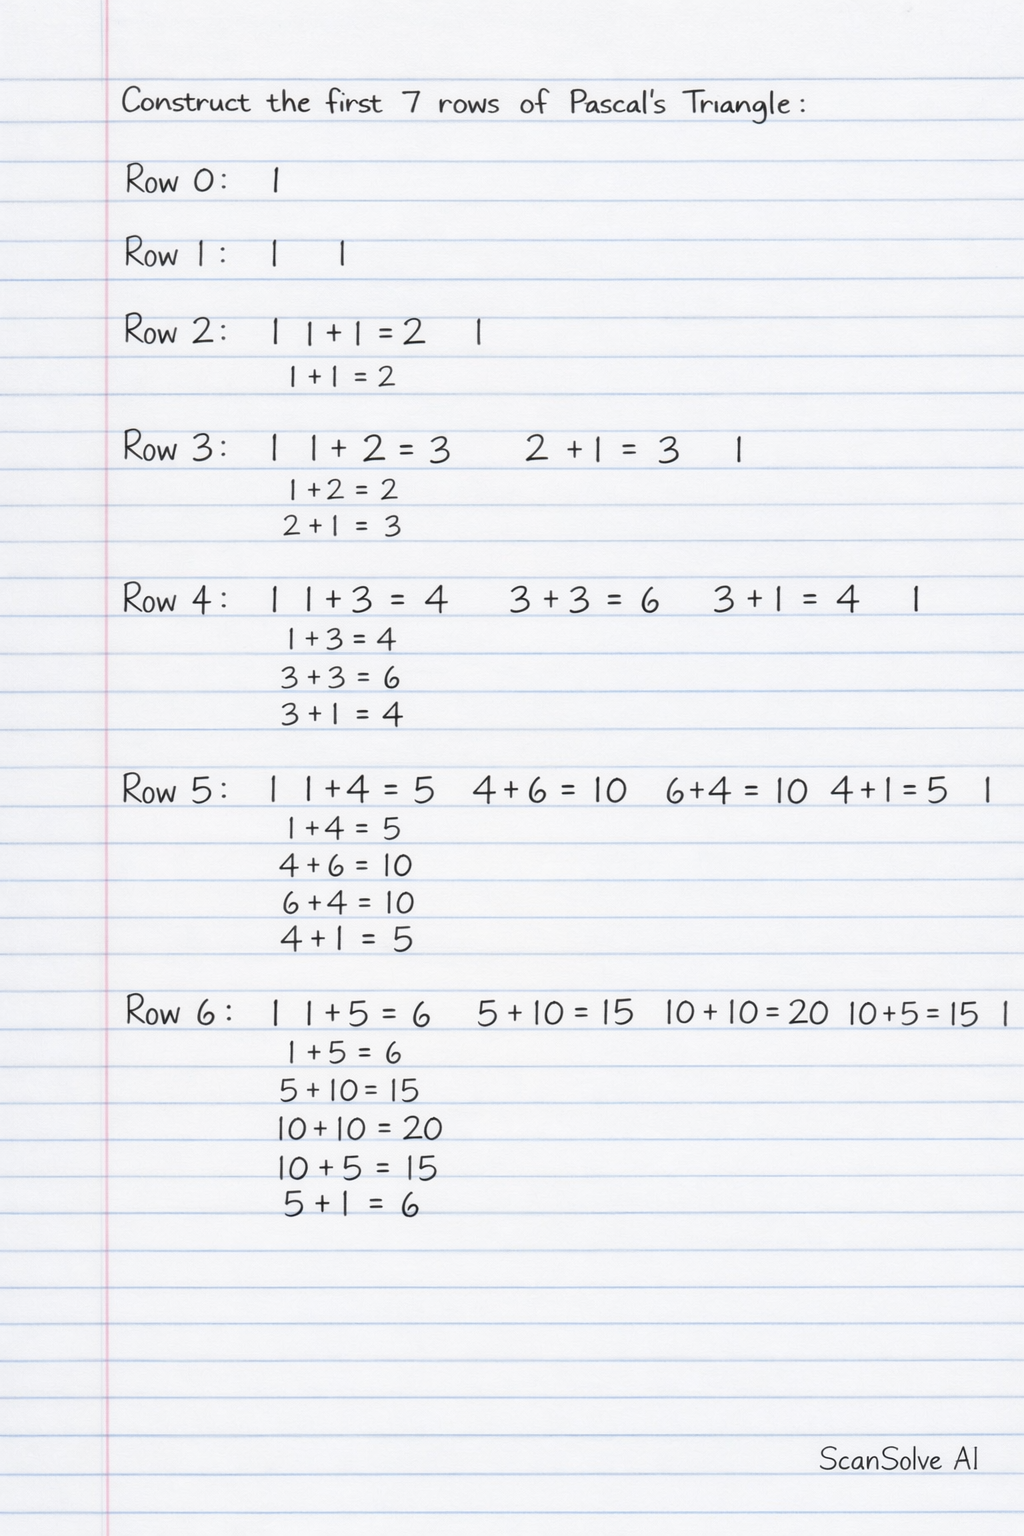 Construct the first 7 rows of Pascal's Triangle:
Row 0: 1
Row 1: 1 1
Row 2: 1 1+1=2 1
1+1=2
Row 3: 1 1+2=3 2+1=3 1
1+2=2
2+1=3
Row 4: 1 1+3=4 3+3=6 3+1=4 1
1+3=4
3+3=6
3+1=4
Row 5: 1 1+4=5 4+6=10 6+4=10 4+1=5 1
1+4=5
4+6=10
6+4=10
4+1=5
Row 6: 1 1+5=6 5+10=15 10+10=20 10+5=15 1
1+5=6
5+10=15
10+10=20
10+5=15
5+1=6
ScanSolve AI